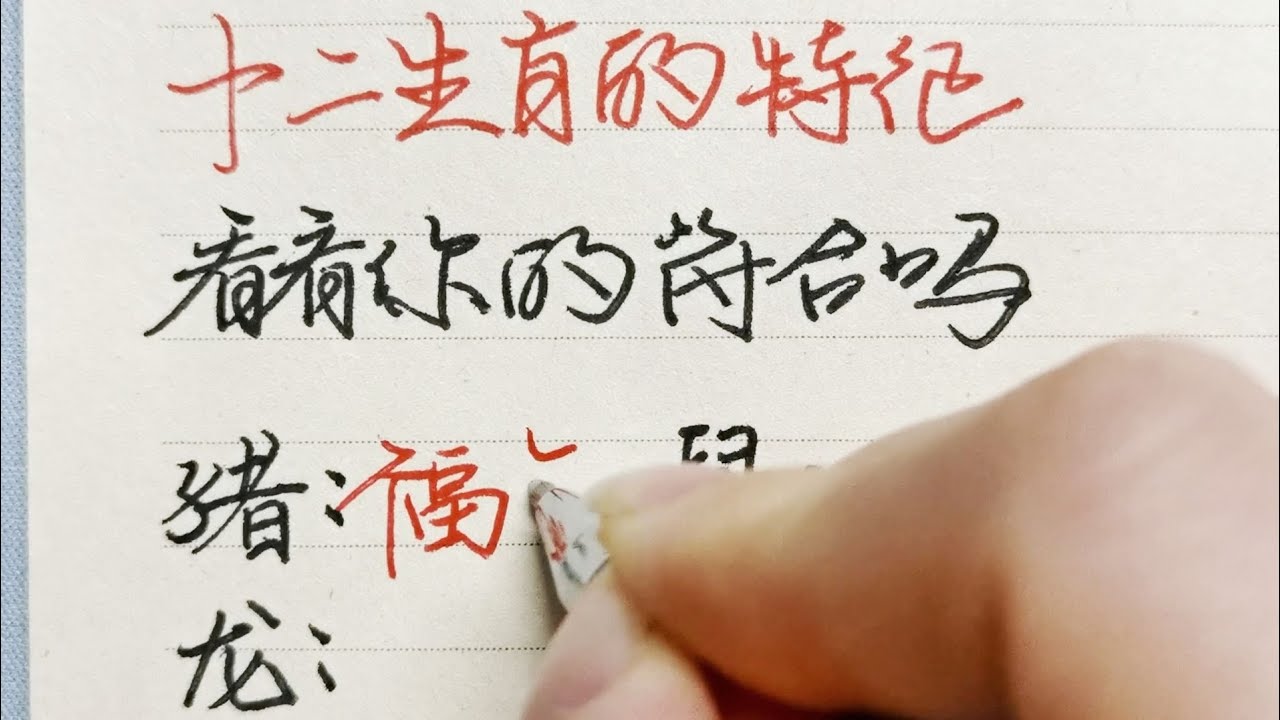 十二生肖的特征
看看你的符合吗
豬：福
龙：